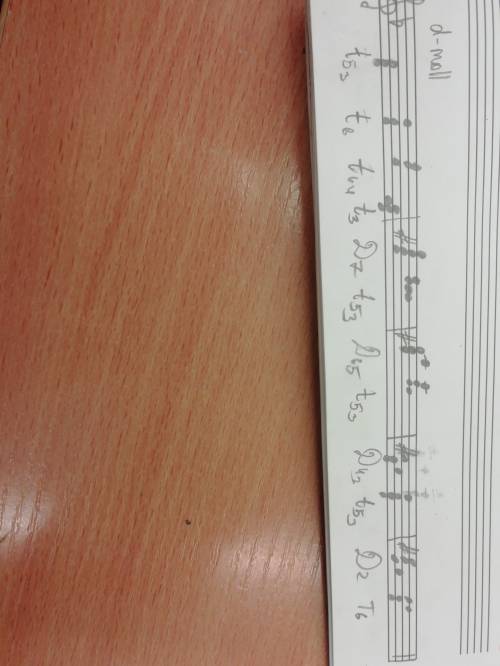 d-moll
t53 t6 t64 t3 D7 t53 D65 t53 D43 t53 D2 T6